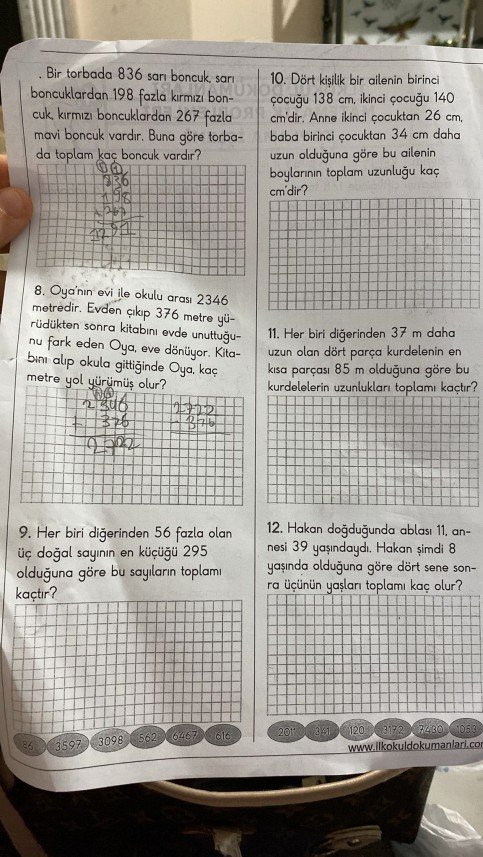 . Bir torbada 836 sarı boncuk, sarı
boncuklardan 198 fazla kırmızı bon-
cuk, kırmızı boncuklardan 267 fazla
mavi boncuk vardır. Buna göre torba-
da toplam kaç boncuk vardır?
836
198
+ 267
8. Oya'nın evi ile okulu arası 2346
metredir. Evden çıkıp 376 metre yü-
rüdükten sonra kitabını evde unuttuğu-
nu fark eden Oya, eve dönüyor. Kita-
bını alıp okula gittiğinde Oya, kaç
metre yol yürümüş olur?
2346
+ 376
2722
2722
- 376
9. Her biri diğerinden 56 fazla olan
üç doğal sayının en küçüğü 295
olduğuna göre bu sayıların toplamı
kaçtır?
86 3597 3098 562 6467 616
10. Dört kişilik bir ailenin birinci
çocuğu 138 cm, ikinci çocuğu 140
cm'dir. Anne ikinci çocuktan 26 cm,
baba birinci çocuktan 34 cm daha
uzun olduğuna göre bu ailenin
boylarının toplam uzunluğu kaç
cm'dir?
11. Her biri diğerinden 37 m daha
uzun olan dört parça kurdelenin en
kısa parçası 85 m olduğuna göre bu
kurdelelerin uzunlukları toplamı kaçtır?
12. Hakan doğduğunda ablası 11, an-
nesi 39 yaşındaydı. Hakan şimdi 8
yaşında olduğuna göre dört sene son-
ra üçünün yaşları toplamı kaç olur?
2011 341 120 3172 7430 1053
www.ilkokuldokumanlari.co